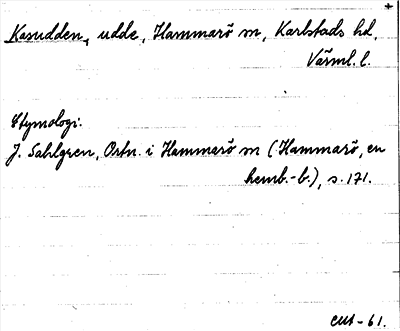 +
Kasudden, udde, Hammarö sn, Karlstads hd,
Värml. l.
Etymologi:
J. Sahlgren, Ortn. i Hammarö sn (Hammarö, en
hemb.-b.), s. 171.
EUA-61.